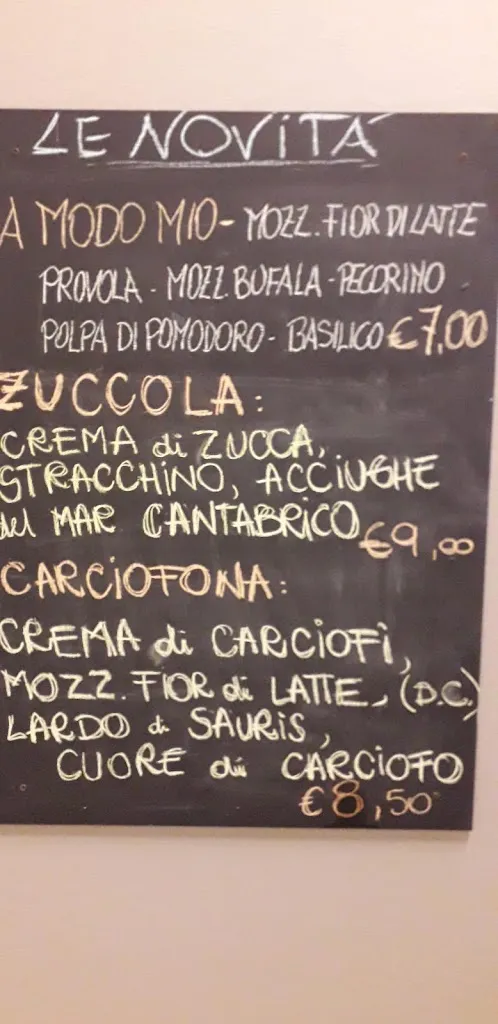 LE NOVITÁ
A MODO MIO - MOZZ. FIOR DI LATTE
PROVOLA - MOZZ. BUFALA - PECORINO
POLPA DI POMODORO - BASILICO €7,00
ZUCCOLA:
CREMA di ZUCCA,
STRACCHINO, ACCIUGHE
del MAR CANTABRICO €9,00
CARCIOFONA:
CREMA di CARCIOFI,
MOZZ. FIOR di LATTE, (D.C.)
LARDO di SAURIS,
CUORE di CARCIOFO
€8,50